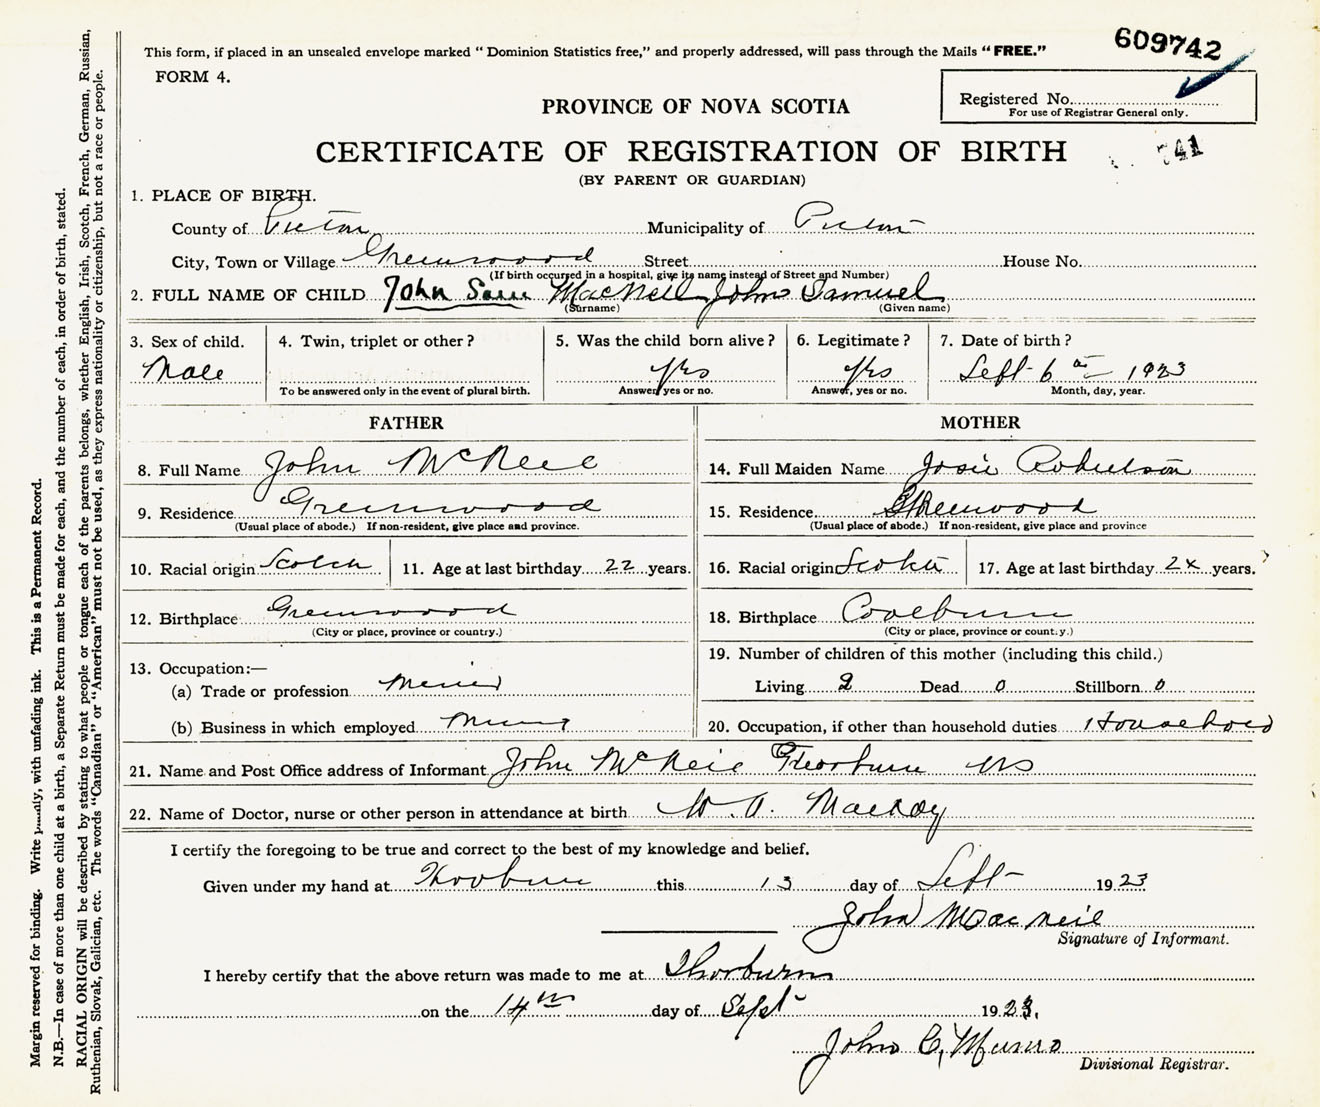 This form, if placed in an unsealed envelope marked "Dominion Statistics free," and properly addressed, will pass through the Mails "FREE."
609742
FORM 4.
Registered No.
For use of Registrar General only.
PROVINCE OF NOVA SCOTIA
CERTIFICATE OF REGISTRATION OF BIRTH
741
(BY PARENT OR GUARDIAN)
1. PLACE OF BIRTH.
County of Pictou Municipality of Pictou
City, Town or Village Greenwood Street House No.
(If birth occurred in a hospital, give its name instead of Street and Number)
2. FULL NAME OF CHILD John Sam MacNeil John Samuel
(Surname) (Given name)
3. Sex of child. 4. Twin, triplet or other? 5. Was the child born alive? 6. Legitimate? 7. Date of birth?
Male yes yes Sept 6 1923
To be answered only in the event of plural birth. Answer, yes or no. Answer, yes or no. Month, day, year.
FATHER MOTHER
8. Full Name John McNeil 14. Full Maiden Name Josie Robertson
9. Residence Greenwood 15. Residence Greenwood
(Usual place of abode.) If non-resident, give place and province. (Usual place of abode.) If non-resident, give place and province
10. Racial origin Scotch 11. Age at last birthday 22 years. 16. Racial origin Scotch 17. Age at last birthday years.
12. Birthplace Greenwood 18. Birthplace Coalburn
(City or place, province or country.) (City or place, province or country.)
13. Occupation:— 19. Number of children of this mother (including this child.)
(a) Trade or profession Miner Living 2 Dead 0 Stillborn 0
(b) Business in which employed Mining 20. Occupation, if other than household duties Household
21. Name and Post Office address of Informant John McNeil Thorburn NS
22. Name of Doctor, nurse or other person in attendance at birth MacKay
I certify the foregoing to be true and correct to the best of my knowledge and belief.
Given under my hand at Thorburn this 13 day of Sept 1923
John MacNeil
Signature of Informant.
I hereby certify that the above return was made to me at Thorburn
on the 14th day of Sept 1923.
John C. Munro
Divisional Registrar.
Margin reserved for binding. Write plainly, with unfading ink. This is a Permanent Record.
N.B.—In case of more than one child at a birth, a Separate Return must be made for each, and the number of each, in order of birth, stated.
RACIAL ORIGIN will be described by stating to what people or tongue each of the parents belongs, whether English, Irish, Scotch, French, German, Russian,
Ruthenian, Slovak, Galician, etc. The words "Canadian" or "American" must not be used, as they express nationality or citizenship, but not a race or people.